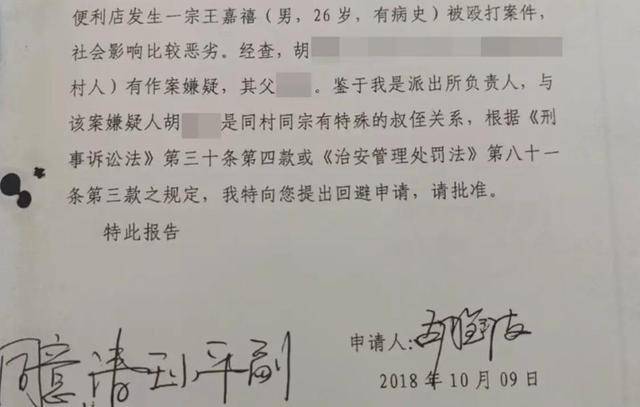 便利店发生一宗王嘉禧（男，26岁，有病史）被殴打案件，
社会影响比较恶劣。经查，胡
村人）有作案嫌疑，其父 。鉴于我是派出所负责人，与
该案嫌疑人胡 是同村同宗有特殊的叔侄关系，根据《刑
事诉讼法》第三十条第四款或《治安管理处罚法》第八十一
条第三款之规定，我特向您提出回避申请，请批准。
特此报告
申请人：
同意 请 平副
2018年10月09日